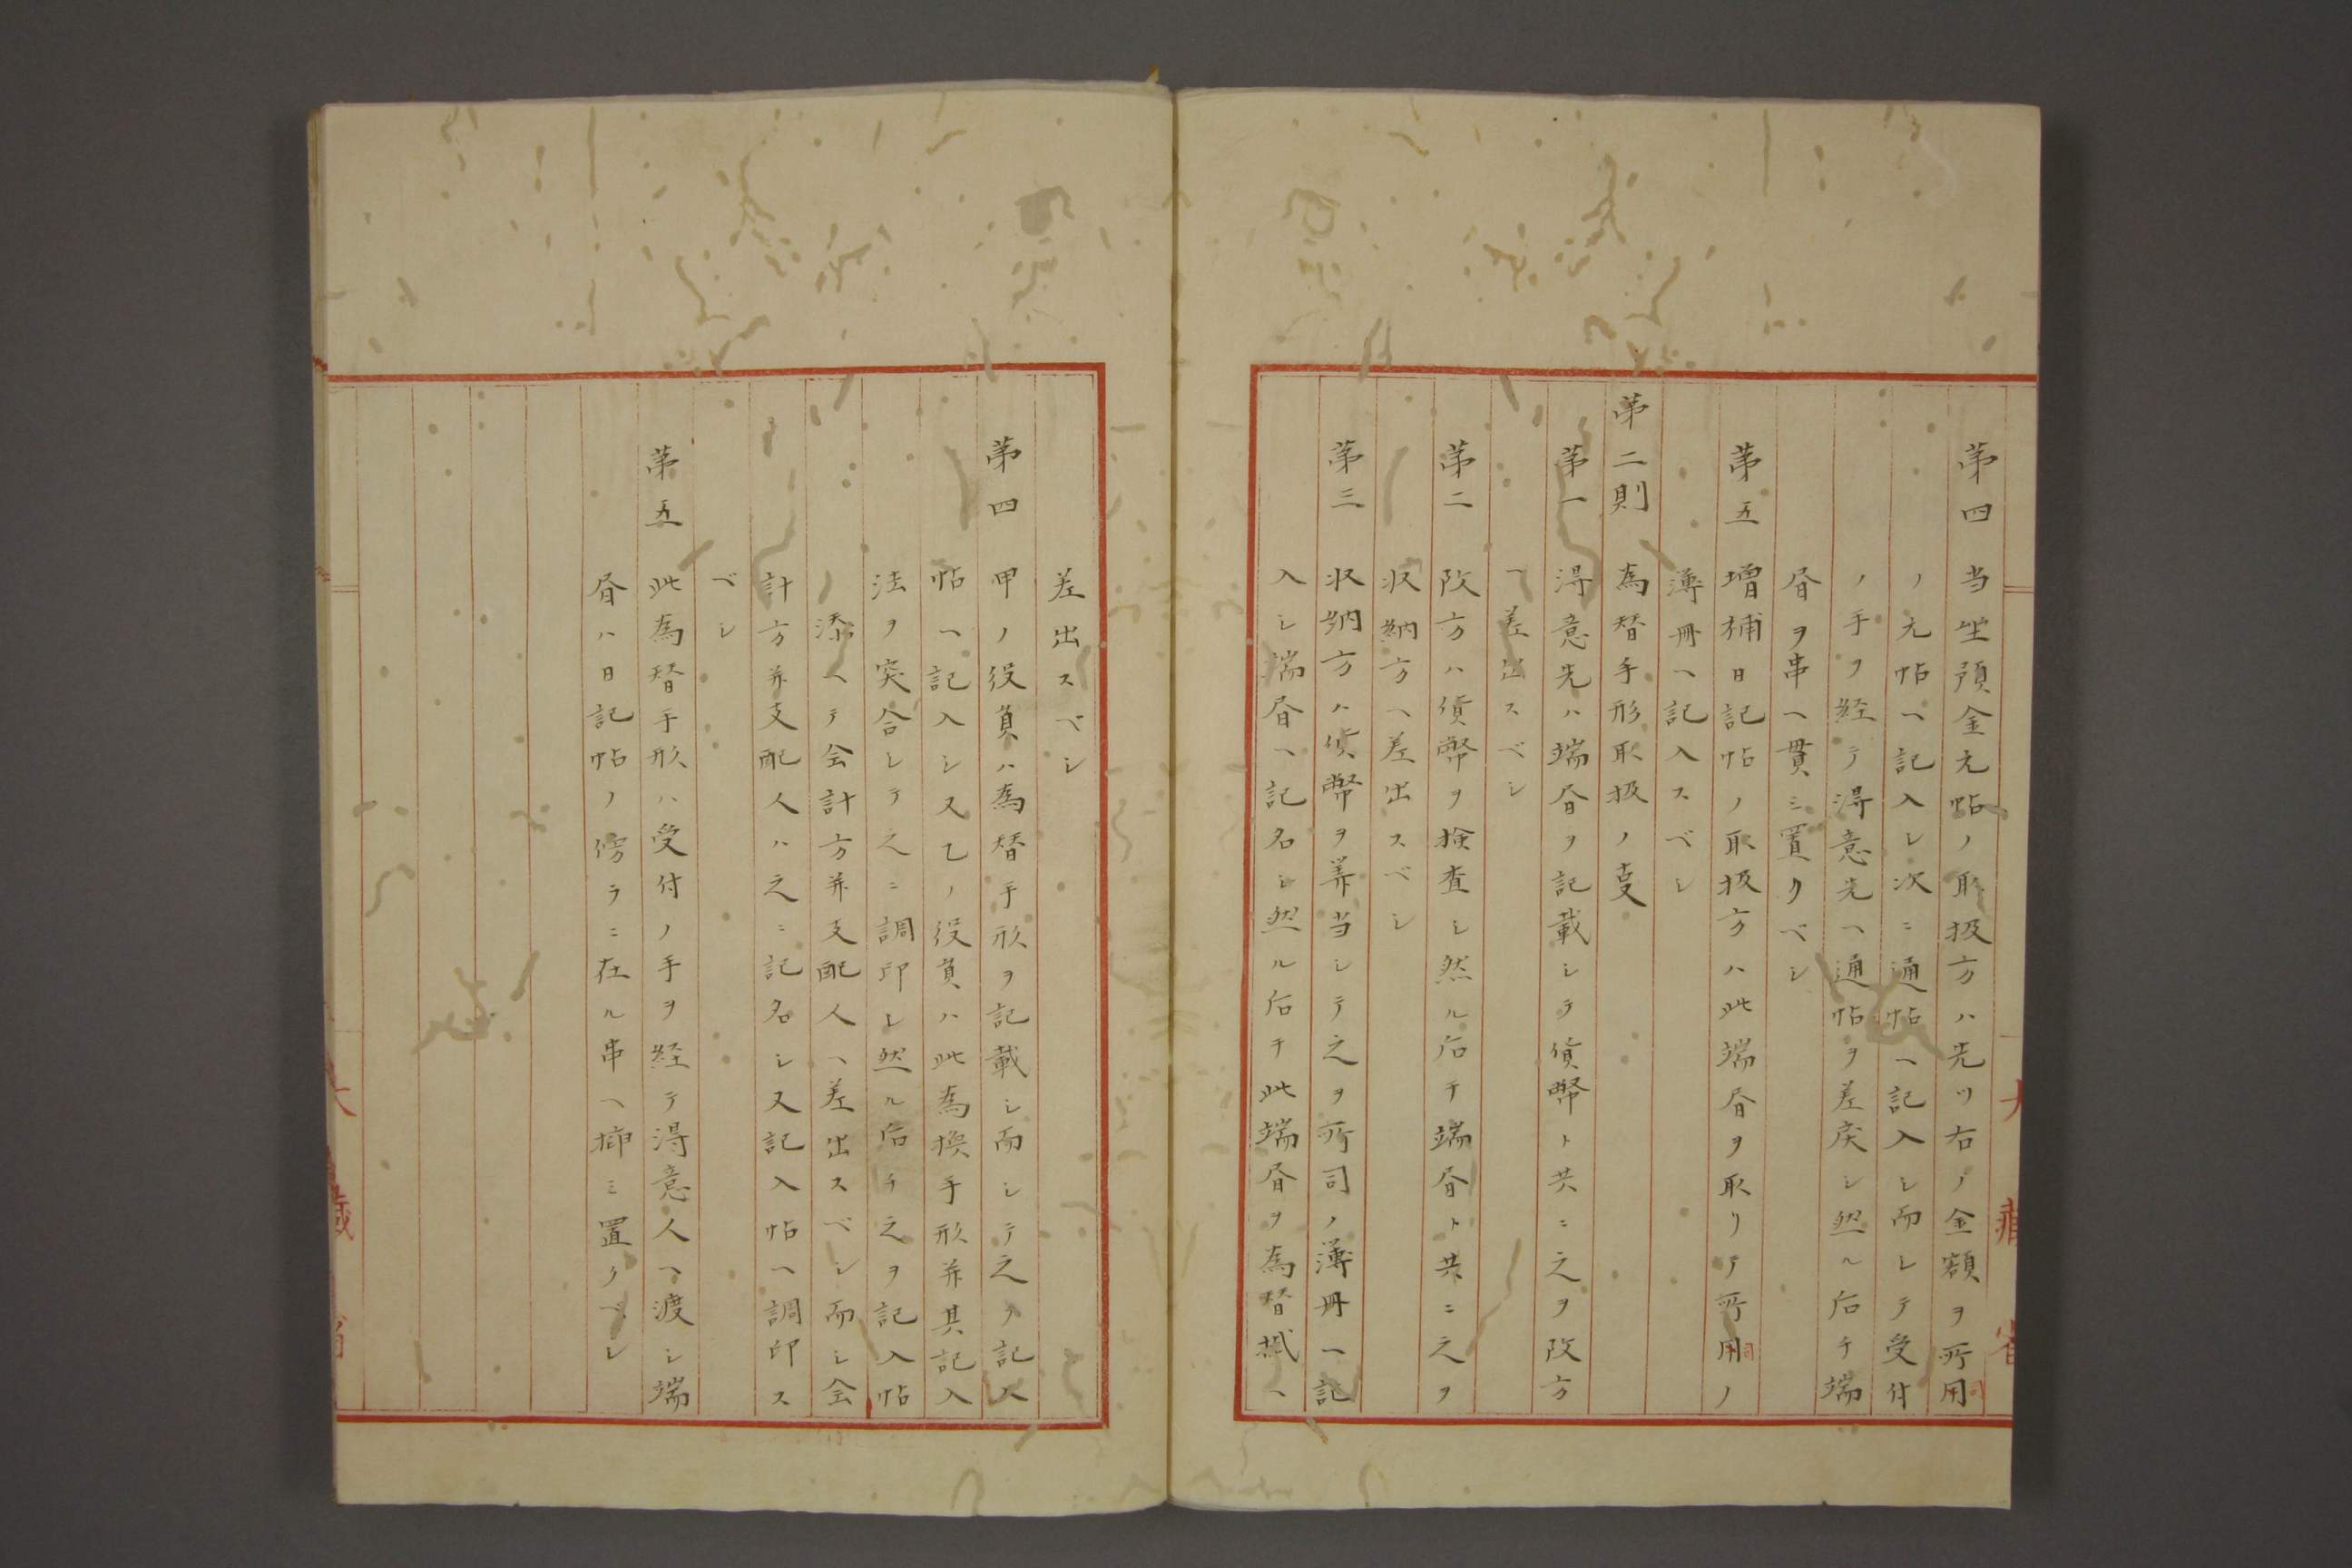 第四 当坐預金元帖ノ取扱方ハ先ツ右ノ金額ヲ所用
ノ元帖ヘ記入シ次ニ通帖ヘ記入シ而シテ受付
ノ手ヲ経テ得意先ヘ通帖ヲ差戻シ然ル后チ端
昏ヲ串ヘ貫ミ置クベシ
第五 増補日記帖ノ取扱方ハ此端昏ヲ取リテ所用ノ
薄冊ヘ記入スベシ
第二則 為替手形取扱ノ支
第一 得意先ハ端昏ヲ記載シテ貨幣ト共ニ之ヲ改方
ヘ差出スベシ
第二 改方ハ貨幣ヲ検査シ然ル后チ端昏ト共ニ之ヲ
収納方ヘ差出スベシ
第三 収納方ハ貨幣ヲ算当シテ之ヲ所司ノ薄冊ヘ記
入シ端昏ヘ記名シ然ル后チ此端昏ヲ為替掛ヘ
大藏省
差出スベシ
第四 甲ノ役員ハ為替手形ヲ記載シ而シテ之ヲ記入
帖ヘ記入シ又乙ノ役員ハ此為換手形并其記入
法ヲ突合シテ之ニ調印シ然ル后チ之ヲ記入帖
ヘ添ヘテ会計方并支配人ヘ差出スベシ而シ会
計方并支配人ハ之ニ記名シ又記入帖ヘ調印ス
ベシ
第五 此為替手形ハ受付ノ手ヲ経テ得意人ヘ渡シ端
昏ハ日記帖ノ傍ラニ在ル串ヘ挿ミ置クベシ
大藏省